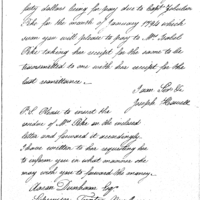 fifty dollars being for pay due to Capt Zebulon
Pike for the month of January 1794 which
sum you will please to pay to Mrs Isabel
Pike taking her receipt for the same to be
transmitted to me with her receipt for the
last remittance.
I am Sir &c
Joseph Howell
P.S. Please to insert the
of Mrs Pike on the inclosed
letter and forward it accordingly
I have written to her requesting her
to inform you in what manner she
may wish you to forward the money.
Aaron Dunham Esqr